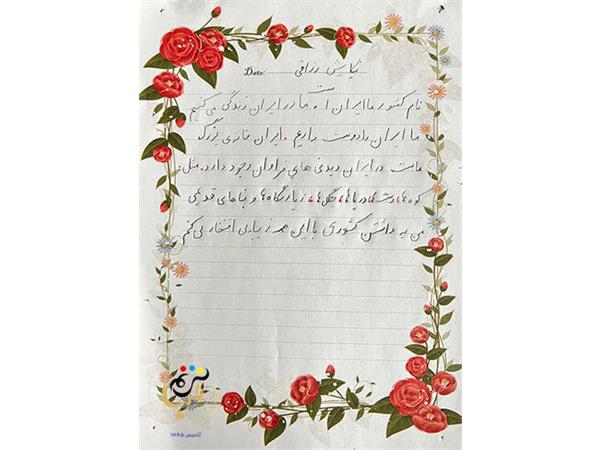 Date: نیایش رزاقی
نام کشور ما ایران است. ما در ایران زندگی می کنیم
ما ایران را دوست داریم. ایران خانه ی بزرگ
ماست در ایران دیدنی های فراوان وجود دارد. مثل
کوه ها، دشت ها، دریاها، جنگل ها، زیارتگاه ها و بناهای قدیمی
من به داشتن کشوری با این همه زیبایی افتخار می کنم
تاسیس ۱۳۸۵